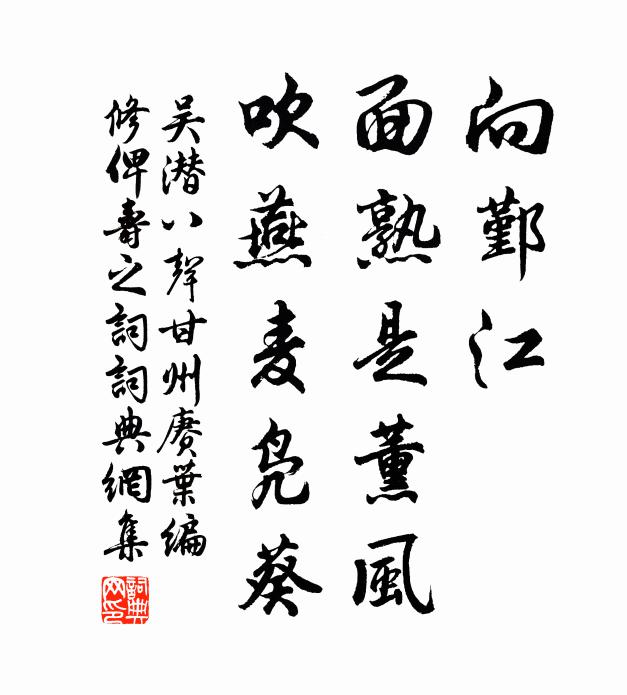 向鄞江
面熟是薰風
吹燕麦凫葵
吴潜八聲甘州赓葉編
修俾壽之詞詞典網集
詞典网印